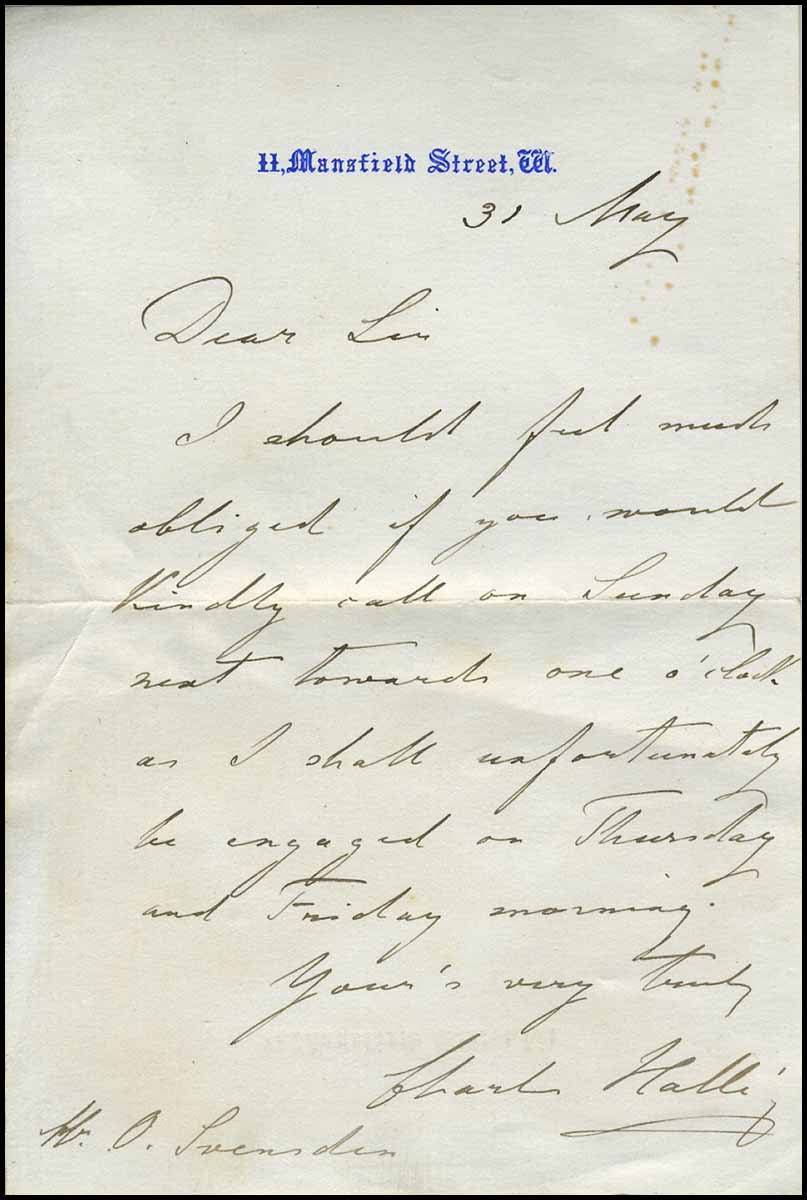 11, Mansfield Street, W.
31 May
Dear Sir
I should feel much
obliged if you would
Kindly call on Sunday
next towards one o'clock
as I shall unfortunately
be engaged on Thursday
and Friday morning.
Your's very truly
Charles Hallé
Mr. O. Svensden